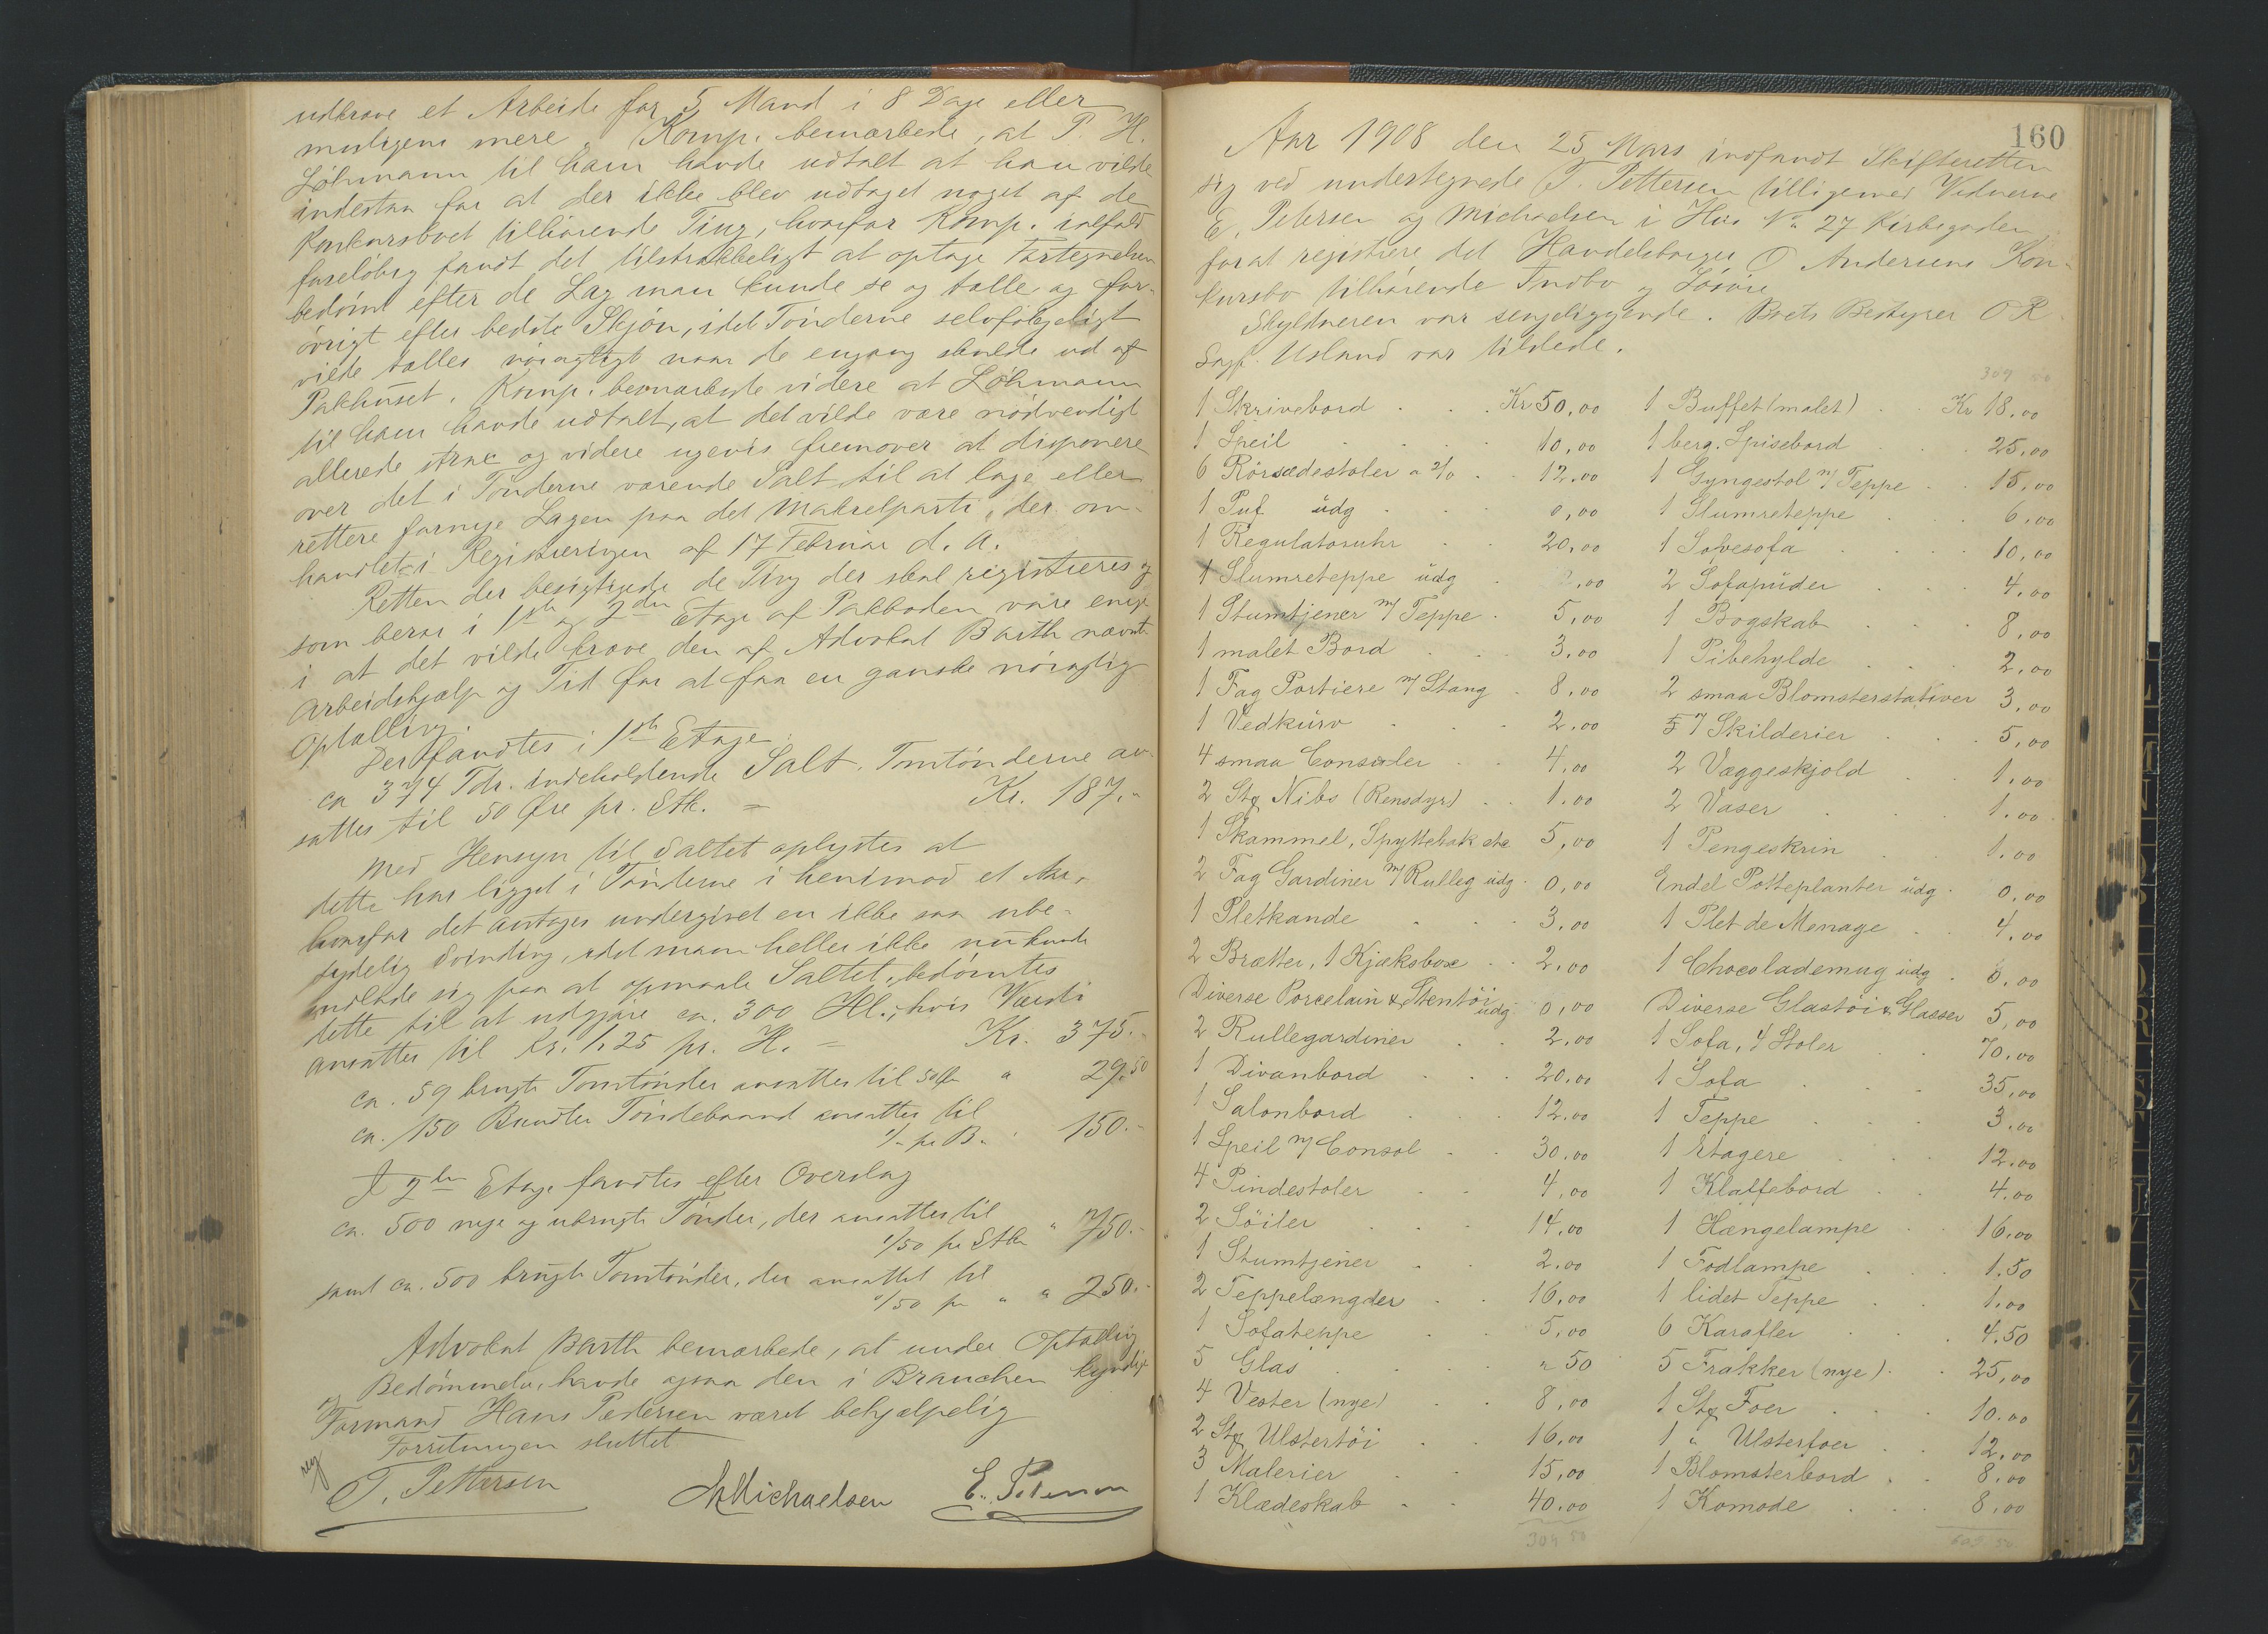 udkrave et Arbeide for 5 Mand i 8 Dage eller
muligens mere. Komp. bemærkede, at P. H.
Løhmann til ham havde udtalt at han vilde
indestaa for at der ikke blev udtaget noget af de
Konkursboet tilhørende Ting, hvorfor Komp. ialfald
foreløbig fandt det tilstrækkeligt at optage Fortegnelsen
bedømt efter de Lag man kunde se og tælle og for-
øvrigt efter bedste Skjøn, idet Tønderne selvfølgeligt
vilde tælles nøiagtigt naar de engang skulde ud af
Pakhuset. Komp. bemærkede videre at Løhmann
til ham havde udtalt, at det vilde være nødvendigt
allerede strax og videre ugevis fremover at disponere
over det i Tønderne værende Salt til at lage eller
rettere fornye Lagen paa det Makrelparti, der om-
handlet i Registreringen af 17 Februar d. A.
Retten der besigtigede de Ting der skal registreres og
som beror i 1ste og 2den Etage af Pakboden vare enige
i at det vilde kræve den af Advokat Barth nævnte
Arbeidshjælp og Tid for at faa en ganske nøiagtig
Optælling.
Der fandtes i 1ste Etage:
ca 374 Tdr. indeholdende Salt. Tomtønderne an-
sattes til 50 Øre pr. Stk. = Kr. 187.-
Med Hensyn til Saltet oplystes at
dette har ligget i Tønderne i henimod et Aar,
hvorfor det antages undergivet en ikke saa ube-
tydelig Svinding, idet man heller ikke nu kunde
indlade sig paa at opmaale Saltet, bedømtes
dette til at udgjøre ca. 300 Hl., hvis Værdi
ansattes til Kr. 1,25 pr. H. = Kr. 375.-
ca. 59 brugte Tomtønder ansattes til 50 Øre " 29.50
ca. 150 Bundter Tøndebaand ansattes til
1/- pr B. " 150.-
I 2den Etage fandtes efter Overslag
ca. 500 nye og ubrugte Tønder, der ansattes til
1/50 pr Stk " 750.-
samt ca. 500 brugte Tomtønder, der ansattes til
0/50 pr " " 250.-
Advokat Barth bemærkede, at under Optælling
og Bedømmelse, havde ogsaa den i Branchen kyndige
Formand Hans Pedersen været behjælpelig
Forretningen sluttet
T. Pettersen Michaelsen E. Petersen
160
Aar 1908 den 25 Mars indfandt Skifteretten
sig ved undertegnede T. Pettersen tilligemed Vidnerne
E. Petersen og Michaelsen i Hus No 27 Kirkegaden
for at registrere det Handelsborger O Andersens Kon-
kursbo tilhørende Indbo og Løsøre
Skyldneren var sengeliggende. Boets Bestyrer O R
Sagf. Usland var tilstede.
309 50
1 Skrivebord . . . Kr 50,00
1 Speil . . . . 10,00
6 Rörsædestoler a 2/0 . . 12,00
1 Puf üdg . . . 0,00
1 Regulatoruhr . . 20,00
1 Slumreteppe üdg . 0,00
1 Stumtjener m/ Teppe . 5,00
1 malet Bord . . . 3,00
1 Fag Portiere m/ Stang . 8,00
1 Vedkürv . . . 2,00
4 smaa Consoler . . 4,00
2 Stk Nibs (Rensdyr) . . 1,00
1 Skammel, Spyttebak etc 5,00
2 Fag Gardiner m/ Rulleg üdg . 0,00
1 Pletkande . . . 3,00
2 Brætter, 1 Kjæksboxe . . 2,00
Diverse Porcelain & Stentöi üdg 0,00
2 Rullegardiner . . 2,00
1 Divanbord . . . 20,00
1 Salonbord . . . 12,00
1 Speil m/ Consol . . 30,00
4 Pindestoler . . 4,00
2 Söiler . . . 14,00
1 Stumtjener . . 2,00
2 Teppelængder . . 16,00
1 Sofateppe . . 5,00
5 Glas . . . " 50
4 Vester (nye) . . 8,00
2 Stk Ulstertöi . . 16,00
3 Malerier . . 15,00
1 Klædeskab . . 40,00
309 50
1 Buffet (malet) . . Kr 18,00
1 berg. Spisebord . . . 25,00
1 Gyngestol m/ Teppe . . 15,00
1 Slumreteppe . . . 6,00
1 Sovesofa . . . 10,00
2 Sofapüder . . . 4,00
1 Bogskab . . . 8,00
1 Pibehylde . . . 2,00
2 smaa Blomsterstativer 3,00
7 Skilderier . . . 5,00
2 Væggeskjold . . 1,00
2 Vaser . . . 1,00
1 Pengeskrin . . 1,00
Endel Potteplanter üdg . 0,00
1 Plet de Menage . . 4,00
1 Chocolademug üdg . 0,00
Diverse Glastöi & Glasser 5,00
1 Sofa, 4 Stoler . . 70,00
1 Sofa . . . 35,00
1 Teppe . . . 3,00
1 Etagere . . . 12,00
1 Klaffebord . . 4,00
1 Hængelampe . . 16,00
1 Fodlampe . . . 1,50
1 lidet Teppe . . 1,00
6 Karafler . . . 4,50
5 Frakker (nye) . . 25,00
1 Stk Foer . . . 10,00
1 " Ulsterfoer . . 12,00
1 Blomsterbord . . 8,00
1 Komode . . . 8,00